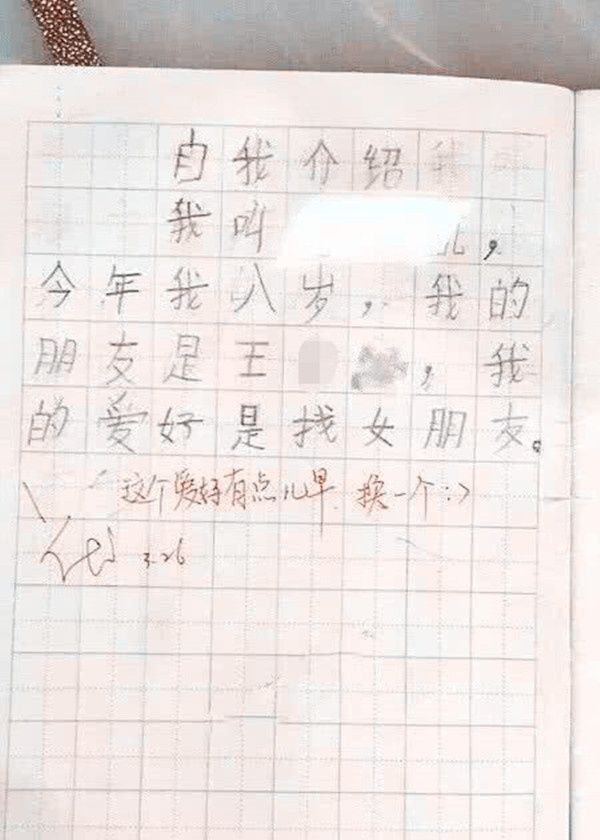 自我介绍
我叫
,
今年我八岁,我的
朋友是王
,我
的爱好是找女朋友。
这个爱好有点儿早 换一个:>
3.26